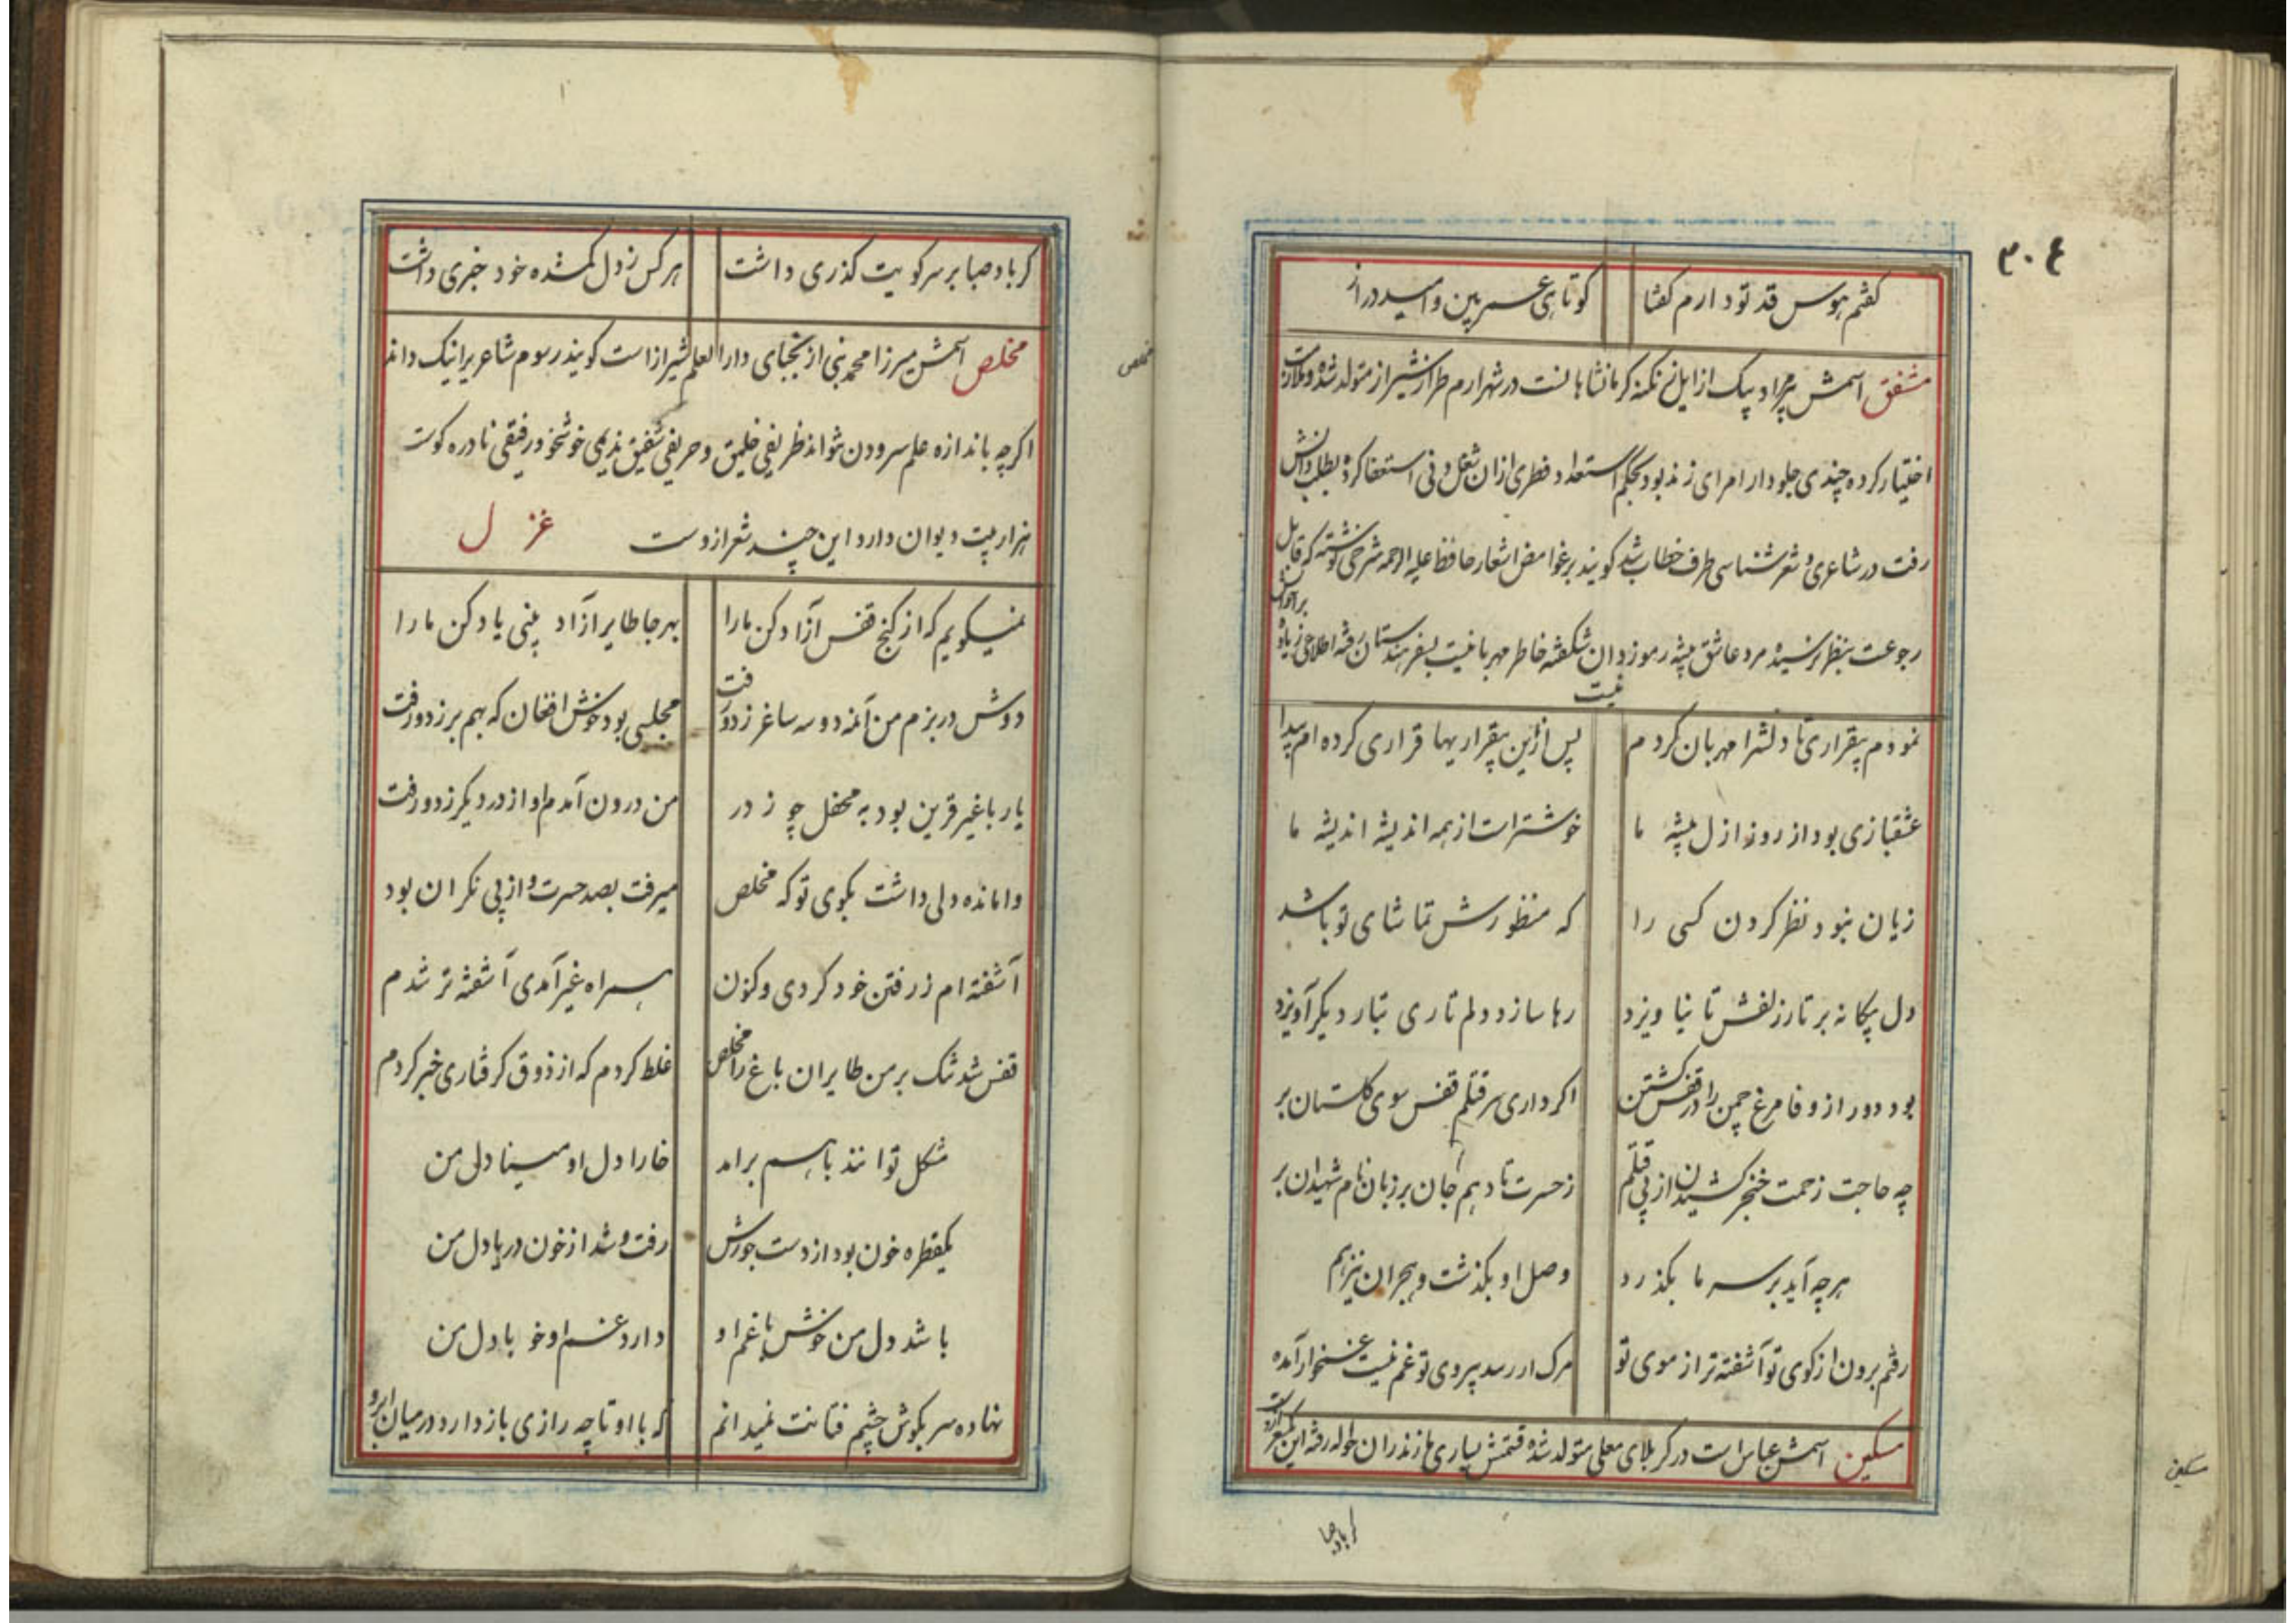 ۳۰۴
کفتم هوس قد تو دارم کفتا کوتاهی عمر بین و امید دراز
مشفق اسمش مراد بیک از ایل نکنه کرمانشاهانست در شهر ارم طراز شیراز متولد شده و ملازمت
اختیار کرده چندی جلودار امرای زند بود بحکم استعداد فطری ازان شغل دنی استعفا کرده بطلب دانش
رفت در شاعری و شعر شناسی طرف خطاب شد کویند بر غوامض اشعار حافظ علیه الرحمه شرحی نوشته که قابل
رجوعت بنظر نرسیده مرد عاشق پیشه رموزدان شکفته خاطر مهربانیست بسفر هندستان رفته اطلاعی زیاده بر احوالش
نیست
نمودم بیقراری تا دلشرا مهربان کردم پس از این بیقراریها قراری کرده ام پیدا
عشقبازی بود از روز ازل پیشه ما خوشتر است از همه اندیشه اندیشه ما
زیان نبود نظر کردن کسی را که منظورش تماشای تو باشد
دل بیکانه بر تار زلفش تا نیاویزد رها سازد دلم تاری بتار دیکر آویزد
بود دور از وفا مرغ چمن را در قفس کشتن اکر داری سر قتلم قفس سوی کلستان بر
چه حاجت زحمت خنجر کشیدن از پی قتلم ز حسرت تا دهم جان بر زبان نام شهیدان بر
هرچه آید بر سر ما بکذرد وصل او بکذشت و هجران نیز هم
رفتم برون از کوی تو آشفته تر از موی تو مرک ار رسد بیروی تو غم نیست غمخوار آمده
مسکین اسمش عباس است در کربلای معلی متولد شده قسمتش بساری مازندران حواله رفته این شعر ازوست
کر باد صبا
مسکین
مخلص
کر باد صبا بر سر کویت کذری داشت هر کس ز دل کمشده خود خبری داشت
مخلص اسمش میرزا محمد نبی از نجبای دارالعلم شیراز است کویند رسوم شاعریرا نیک داند
اکرچه باندازه علم سرودن نتواند ظریفی خلیق و حریفی شفیق ندیمی خوشخو رفیقی نادره کوست
هزار بیت دیوان دارد این چند شعر ازوست غزل
نمیکویم که از کنج قفس آزاد کن مارا بهر جا طایر آزاد بینی یاد کن مارا
دوش در بزم من آمد دو سه ساغر زد و رفت مجلسی بود خوش افغان که بهم بر زد و رفت
یار با غیر قرین بود به محفل چو ز در من درون آمدم او از در دیکر زد و رفت
وامانده دلی داشت بکوی تو که مخلص میرفت بصد حسرت و از پی نکران بود
آشفته ام ز رفتن خود کردی و کنون همراه غیر آمدی آشفته تر شدم
قفس شد تنک بر من طایران باغ را مخلص غلط کردم که از ذوق کرفتاری خبر کردم
مشکل توانند باهم برآمد خارا دل او مینا دل من
یکقطره خون بود از دست جورش رفت و شد از خون دریا دل من
باشد دل من خوش با غم او دارد غم او خو با دل من
نهاده سر بکوش چشم فتانت نمیدانم که با او تا چه رازی باز دارد در میان ابرو